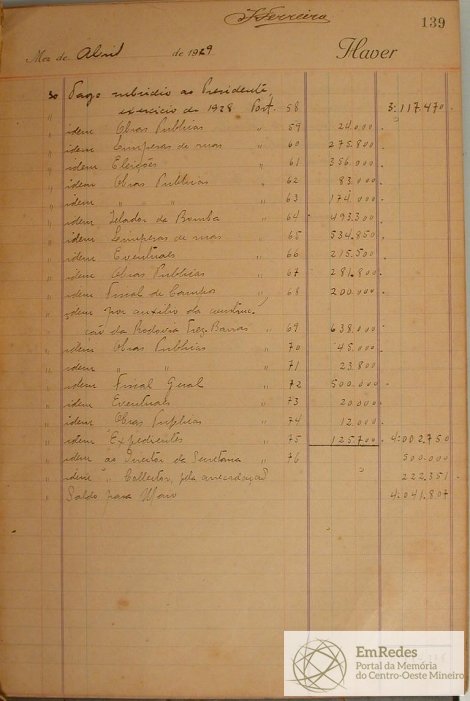 J Ferreira
139
Mez de Abril de 1929 Haver
30 Pago subsidio ao Presidente,
" exercicio de 1928 Port. 58 3:117.470
" idem Obras Publicas " 59 24.000
" idem Limpesas de ruas " 60 275.800
" idem Eleições " 61 356.000
" idem Obras Publicas " 62 83.000
" idem " " " 63 174.000
" idem Zelador de Bomba " 64 493.300
" idem Limpesas de ruas " 65 534.850
" idem Eventuaes " 66 215.500
" idem Obras Publicas " 67 281.800
" idem Fiscal de " 68 200.000
" idem por auxilio da construc-
ção da Rodovia Trez Barras " 69 638.000
" idem Obras Publicas " 70 45.000
" idem " " " 71 23.800
" idem Fiscal Geral " 72 500.000
" idem Eventuaes " 73 20.000
" idem Obras Publicas " 74 12.000
" idem Expedientes " 75 125.700 4:002.750
" idem ao Director da Secretaria " 76 500.000
" idem " Collector, pela arrecadação 222.351
" Saldo para Maio 4:041.807
EmRedes
Portal da Memória
do Centro-Oeste Mineiro